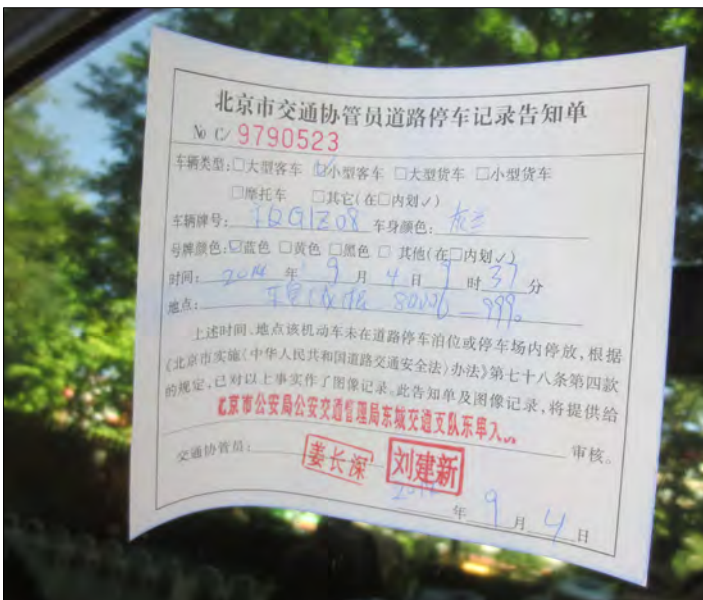 北京市交通协管员道路停车记录告知单
№ C/ 9790523
车辆类型:□大型客车 ☑小型客车 □大型货车 □小型货车
□摩托车 □其它(在□内划✓)
车辆牌号: 车身颜色:
号牌颜色:☑蓝色 □黄色 □黑色 □ 其他(在□内划✓)
时间: 2014 年 9 月 4 日 9 时 37 分
地点:
上述时间、地点该机动车未在道路停车泊位或停车场内停放,根据
《北京市实施〈中华人民共和国道路交通安全法〉办法》第七十八条第四款
的规定,已对以上事实作了图像记录。此告知单及图像记录,将提供给
北京市公安局公安交通管理局东城交通支队东单
审核。
交通协管员: 姜长深 刘建新
年 9 月 4 日